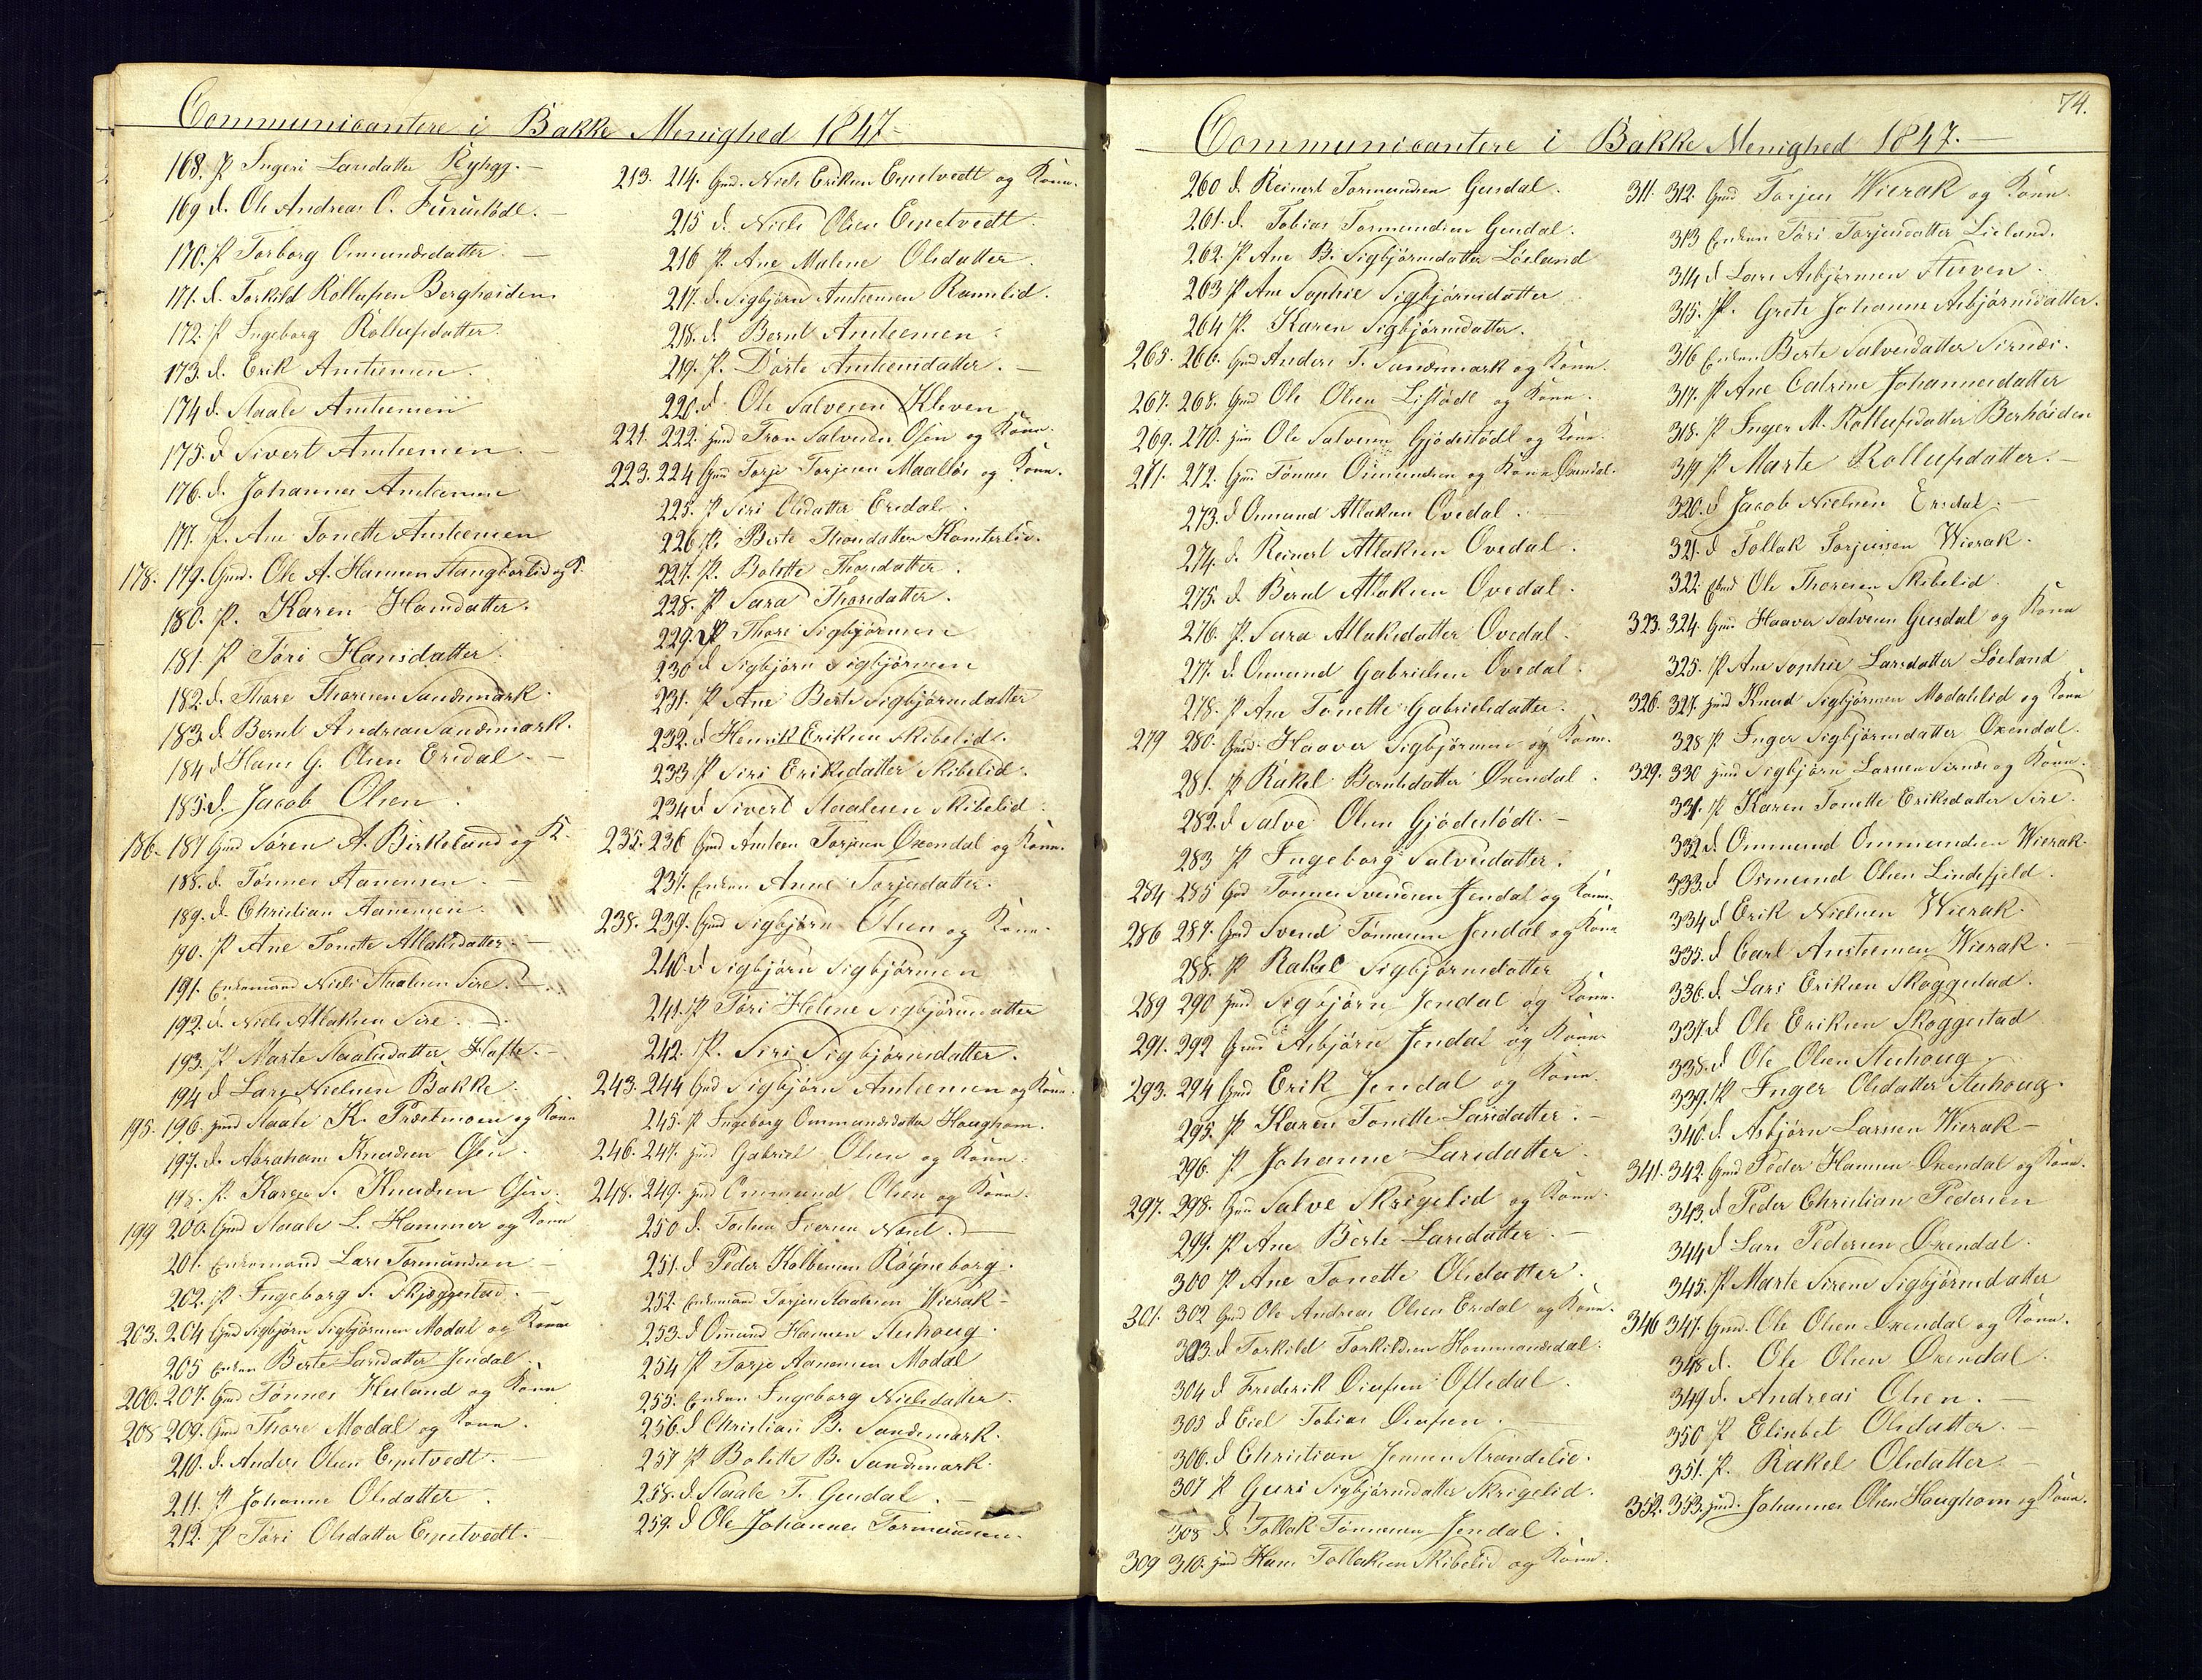 Communicantere i Bakke Menighed 1847
168. P Ingeri Larsdatter
169 d. Ole Andreas O.
170. P Torborg Omundsdatter.
171. d. Torkild Rollufsen Berghøiden
172. P Ingeborg Rollufsdatter
173. d. Erik Anstensen.
174 d. Staale Anstensen
175. d Sivert Anstensen.
176. d. Johannes Anstensen
177. P. Ane Tonette Anstensen
178. 179. Gmd. Ole A. Hansen Stangborlid og K.
180. P. Karen Hansdatter.
181. P Tøri Hansdatter.
182. d. Thore Thoresen Sandsmark.
183. d. Bernt Andreas Sandsmark.
184 d Hans G. Olsen Eresdal.
185. d. Jacob Olsen.
186. 187 Gmd Søren A. Birkeland og K.
188. d. Tønnes Aanensen.
189. d. Christian Aanensen.
190. P Ane Tonette Atlaksdatter.
191. Enkemand Niels Staalesen Sire.
192. d. Niels Atlaksen Sire.
193. P Marte Staalesdatter Hafte.
194 d Lars Nielsen Bakke.
195. 196. gmd Staale K. Præstmoen og Kone
197. d. Abraham Knudsen Osen.
198. P. Karen S. Knudsen Osen.
199 200. Gmd Staale L. Hammer og Kone
201. Enkemand Lars Tormundsen
202. P Ingeborg S. Skjeggestad.
203. 204 Gmd Sigbjørn Sigbjørnsen Modal og Kone
205 Enken Berte Larsdatter Jendal
206. 207. Gmd Tønnes Husland og Kone
208 209. Gmd Thore Modal og Kone.
210. d. Anders Olsen Espetvedt.
211. P Johanne Olsdatter.
212. P Tøri Olsdatter Espetvedt.
213. 214. Gmd. Niels Eriksen Espetvedt og Kone.
215 d. Niels Olsen Espetvedt.
216 P. Ane Malene Olsdatter
217. d. Sigbjørn Anstensen Ramslid.
218. d. Bernt Anstensen
219. P. Dorte Anstensdatter.
220. d Ole Salvesen Kleven
221. 222. gmd Tron Salvesen Osen og Kone.
223. 224 Gmd Torje Torjesen Maaltøe og Kone.
225. P Siri Olsdatter Eresdal.
226 P. Berte Thorsdatter
227. P. Bolette Thorsdatter.
228. P Sara Thorsdatter.
229. P Thore Sigbjørnsen
230 d Sigbjørn Sigbjørnsen
231. P Ane Berte Sigbjørnsdatter
232. d Henrik Eriksen Skibelid.
233 P Siri Eriksdatter Skibelid.
234 d Sivert Staalesen Skibelid.
235. 236 Gmd Ansten Torjesen Oxendal og Kone.
237. Enken Anne Torjesdatter.
238. 239. Gmd Sigbjørn Olsen og Kone.
240. d Sigbjørn Sigbjørnsen
241. P Tøri Helene Sigbjørnsdatter
242. P. Siri Sigbjørnsdatter.
243. 244 Gmd Sigbjørn Anstensen og Kone.
245. P Ingeborg Ommundsdatter Haughom.
246. 247. gmd Gabriel Olsen og Kone.
248. 249. gmd Ommund Olsen og Kone.
250 d.
251. d Peder Kolbensen Røyneborg.
252. Enkemand Torjus Staalesen Wierak
253. d Omund Hansen Stuhoug.
254 P Torje Aanensen Modal
255. Enken Ingeborg Nielsdatter
256. d Christian B. Sandsmark.
257 P Bolette B. Sandsmark.
258. d. Staale T. Gusdal.
259. d Ole Johannes Tormundsen.
74.
Communicantere i Bakke Menighed 1847.
260 d. Reinert Tormundsen Gusdal.
261. d. Tobias Tormundsen Gusdal.
262. P Ane B. Sigbjørnsdatter Løeland
263 P Ane Sophie Sigbjørnsdatter
264 P. Karen Sigbjørnsdatter.
265. 266. Gmd Anders T. Sandsmark og Kone.
267. 268. Gmd Ole Olsen Listødl og Kone.
269. 270. gmd Ole Salvesen Gjødestødl og Kone.
271. 272. Gmd Tønnes Omundsen og Kone Oxendal.
273. d Omund Atlaksen Ovedal.
274. d. Reinert Atlaksen Ovedal.
275. d. Bernt Atlaksen Ovedal.
276. P. Sara Atlaksdatter Ovedal.
277. d Omund Gabrielsen Ovedal.
278. P Ane Tonette Gabrielsdatter.
279 280. Gmd. Haaver Sigbjørnsen og Kone.
281. P Rakel Berntsdatter Oxendal.
282. d Salve Olsen Gjødestødl.
283 P Ingeborg Salvesdatter.
284 285 Gmd Tønnes Svendsen Jendal og Kone.
286 287. Gmd Svend Tønnesen Jendal og Kone
288. P Rakel Sigbjørnsdatter
289 290 gmd Sigbjørn Jendal og Kone.
291. 292 Gmd Asbjørn Jendal og Kone.
293. 294 Gmd Erik Jendal og Kone.
295. P Karen Tonette Larsdatter.
296. P Johanne Larsdatter.
297. 298. Gmd Salve Skrigelid og Kone.
299. P Ane Berte Larsdatter.
300 P Ane Tonette Olsdatter.
301. 302 Gmd Ole Andreas Olsen Eresdal og Kone.
303. d Torkild Torkildsen Hommandsdal.
304 d Frederik Oftedal.
305 d Eiel Tobias
306. d Christian Jensen Strandelie.
307 P Guri Sigbjørnsdatter Skrigelid.
308 d. Tollak Tønnesen Jendal.
309 310. gmd Hans Tollaksen Skibelid og Kone.
311. 312. Gmd Torjus Wierak og Kone.
313 Enken Tøri Torjusdatter Lieland.
314 d Lars Asbjørnsen Stuven.
315. P. Grete Johanne Asbjørnsdatter.
316 Enken Berte Salvesdatter Sirnes.
317. P Ane Catrine Johannesdatter
318. P Inger M. Rollufsdatter Berhøiden
319 P Marte Rollufsdatter.
320. d Jacob Nielsen Eresdal.
321. d Tollak Torjussen Wierak.
322. Emd Ole Thoresen Skibelid
323. 324. Gmd Haaver Salvesen Gusdal og Kone
325. P Ane Sophie Larsdatter Løeland
326. 327. gmd Knud Sigbjørnsen Modalslid og Kone
328 P Inger Sigbjørnsdatter Oxendal.
329. 330 gmd Sigbjørn Larsen Sirnes og Kone.
331. P Karen Tonette Eriksdatter Sire.
332 d. Ommund Ommundsen Wierak.
333. d Osmund Olsen Lindefjeld.
334 d Erik Nielsen Wierak.
335. d Carl Anstensen Wierak.
336. d. Lars Eriksen Skoggestad.
337. d Ole Eriksen Skoggestad
338. d Ole Olsen Stuhoug.
339. P Inger Olsdatter Stuhoug.
340. d. Asbjørn Larsen Wierak
341. 342. Gmd Peder Hansen Oxendal og Kone.
343. d Peder Christian Pedersen
344 d Lars Pedersen Oxendal.
345. P Marte Sirene Sigbjørnsdatter
346 347. Gmd. Ole Olsen Oxendal og Kone.
348 d. Ole Olsen Oxendal.
349 d. Andreas Olsen.
350 P Elisabet Olsdatter.
351. P. Rakel Olsdatter
352. 353. gmd. Johannes Olsen Haughom og Kone.